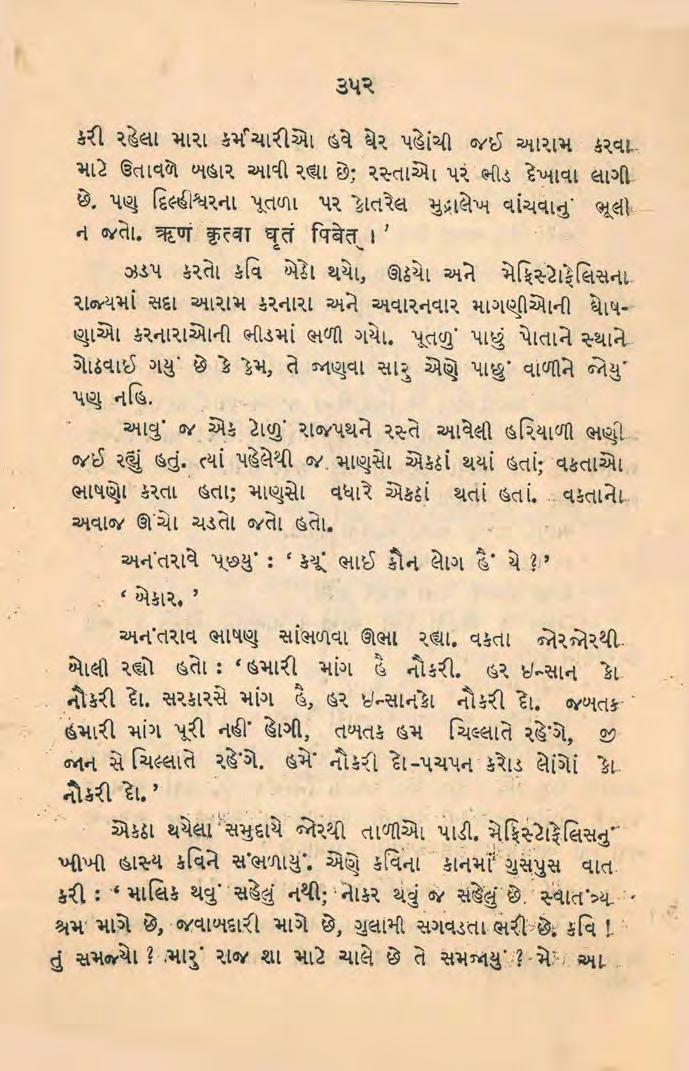 ૩૫૨
કરી રહેલા મારા કર્મચારીઓ હવે ઘેર પહોંચી જઈ આરામ કરવા
માટે ઉતાવળે બહાર આવી રહ્યા છે; રસ્તાઓ પર ભીડ દેખાવા લાગી
છે. પણ દિલ્હીશ્વરના પૂતળા પર કોતરેલ મુદ્રાલેખ વાંચવાનું ભૂલી
ન જતો. ऋणं कृत्वा घृतं पिबेत् ।’
ઝડપ કરતો કવિ બેઠો થયો, ઊઠયો અને મેફિસ્ટોફેલિસના
રાજ્યમાં સદા આરામ કરનારા અને અવારનવાર માગણીઓની ઘોષ-
ણાઓ કરનારાઓની ભીડમાં ભળી ગયો. પૂતળું પાછું પોતાને સ્થાને
ગોઠવાઈ ગયું છે કે કેમ, તે જાણવા સારુ એણે પાછું વાળીને જોયું
પણ નહિ.
આવું જ એક ટાળું રાજપથને રસ્તે આવેલી હરિયાળી ભણી
જઈ રહ્યું હતું. ત્યાં પહેલેથી જ માણસો એકઠાં થયાં હતાં; વક્તાઓ
ભાષણો કરતા હતા; માણસો વધારે એકઠાં થતાં હતાં. વકતાનો
અવાજ ઊંચો ચડતો જતો હતો.
અનંતરાવે પૂછ્યું : ‘ કયૂં ભાઈ કૌન લોગ હૈં યે ?’
‘ બેકાર. ’
અનંતરાવ ભાષણ સાંભળવા ઊભા રહ્યા. વક્તા જોરજોરથી
બોલી રહ્યો હતો : ‘હમારી માંગ હૈ નૌકરી. હર ઇન્સાન કો
નૌકરી દો. સરકારસે માંગ હૈ, હર ઇન્સાનકો નૌકરી દો. જબતક
હમારી માંગ પૂરી નહીં હોગી, તબતક હમ ચિલ્લાતે રહેંગે, જી
જાન સે ચિલ્લાતે રહેંગે. હમેં નૌકરી દો-પચપન કરોડ લોંગોં કો
નૌકરી દો.’
એકઠા થયેલા સમુદાયે જોરથી તાળીઓ પાડી. મેફિસ્ટોફેલિસનું
ખીખી હાસ્ય કવિને સંભળાયું. એણે કવિના કાનમાં ગુસપુસ વાત
કરી : ‘ માલિક થવું સહેલું નથી; નોકર થવું જ સહેલું છે. સ્વાતંત્ર્ય
શ્રમ માગે છે, જવાબદારી માગે છે, ગુલામી સગવડતા ભરી છે. કવિ !
તું સમજ્યો ? મારું રાજ શા માટે ચાલે છે તે સમજાયું ? મેં આ